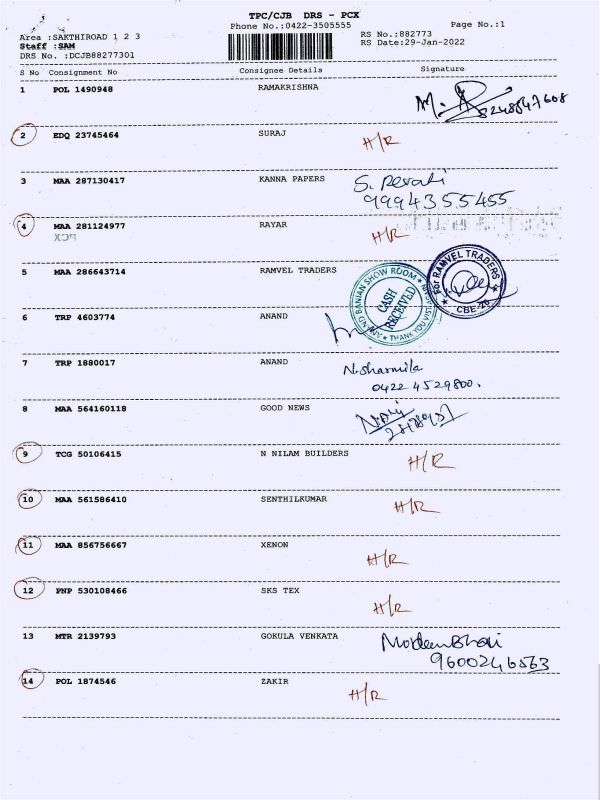 TPC/CJB DRS - PCX
Phone No.:0422-3505555 Page No.:1
Area :SAKTHIROAD 1 2 3 RS No.:882773
Staff :SAM RS Date:29-Jan-2022
DRS No. :DCJB88277301
S No Consignment No Consignee Details Signature
1 POL 1490948 RAMAKRISHNA
2 EDQ 23745464 SURAJ H/R
3 MAA 287130417 KANNA PAPERS S. Revati
9994355455
4 MAA 281124977 RAYAR H/R
PCX
5 MAA 286643714 RAMVEL TRADERS For RAMVEL TRADERS CBE-20
6 TRP 4603774 ANAND BANIAN SHOW ROOM CASH RECEIVED THANK YOU VISIT AGAIN
7 TRP 1880017 ANAND N. Sharmila
0422 4529800.
8 MAA 564160118 GOOD NEWS
9 TCG 50106415 N NILAM BUILDERS H/R
10 MAA 561586410 SENTHILKUMAR H/R
11 MAA 856756667 XENON H/R
12 PNP 530108466 SKS TEX H/R
13 MTR 2139793 GOKULA VENKATA
9600246563
14 POL 1874546 ZAKIR H/R